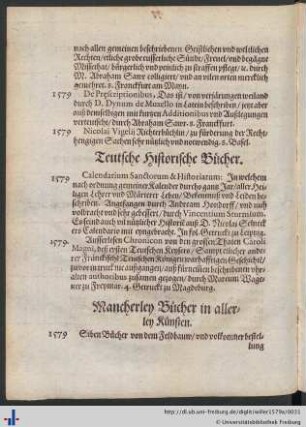 nach allen gemeinen beschriebenen Geistlichen vnd weltlichen
Rechten / etliche grobe eusserliche Sünde / Frevel / vnd begãgne
Missethat / bürgerlich vnd peinlich zu straffen pflege / ıc. durch
M. Abraham Sawr colligiert / vnd an vilen orten mercklich
gemehret. 8. Franckfurt am Mayn.
1579 De Præscriptionibus, Das ist / von verjärungen weiland
durch D. Dynum de Muxello in Latein beschriben / jetzt aber
auß demselbigen mit kurtzen Additionibus vnd Außlegungen
verteutscht / durch Abraham Sawr. 8. Franckfurt.
1579 Nicolai Vigelii Richterbüchlin / zu fürderung der Recht-
hengigen Sachen sehr nützlich vnd notwendig. 8. Basel.
Teutsche Historische Bücher.
1579 Calendarium Sanctorum & Historiarum: In welchem
nach ordnung gemeiner Kalender durchs gantz Jar / aller Hei-
ligen Lehrer vnd Märterer Leben / Bekentnuß vnd Leiden be-
schriben. Angefangen durch Andream Hondorff / vnd auch
vollbracht vnd sehr gebessert / durch Vincentium Sturmium.
Es sind auch vil nützlicher Historiẽ auß D. Nicolai Selneck
ers Calendario mit eyngebracht. In fol. Getruckt zu Leipzig.
1579. Außerlesen Chronicon von den grossen Thaten Caroli
Magni, deß ersten Teutschen Keysers / Sampt etlicher ander
Künigen warhafftigen Geschicht /
zuvor in truck nie
zusamen gezogen / durch
ner zu Freymar. 4. Getruckt zu Magdeburg.
Mancherley Bücher in aller-
ley Künsten.
1579 Siben Bücher von dem Feldbauw / vnd volkomner bestel-
lung
http://dl.ub.uni-freiburg.de/diglit/willer1579a/0031
© Universitätsbibliothek Freiburg